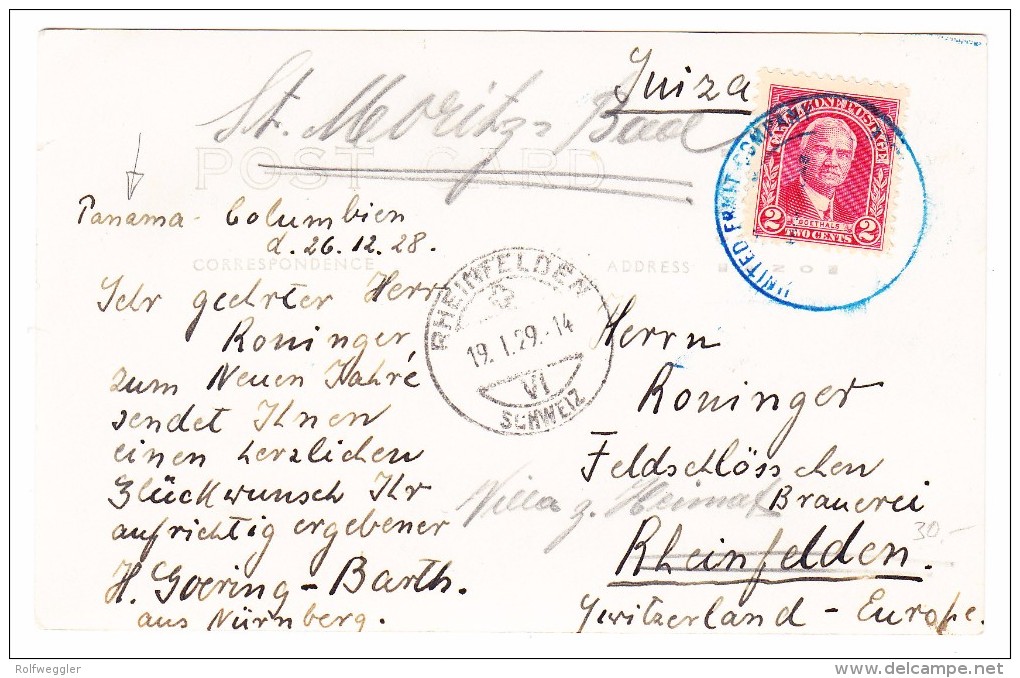 Suiza
St. Moritz-Bad
POST CARD
CANAL ZONE POSTAGE
GOETHALS
2 2
TWO CENTS
UNITED FRUIT COMPANY
Panama - Columbien
d. 26.12.28.
CORRESPONDENCE
ADDRESS
Sehr geehrter Herr
Roninger,
zum Neuen Jahre
sendet Ihnen
einen herzlichen
Glückwunsch Ihr
aufrichtig ergebener
H. Goering - Barth.
aus Nürnberg.
RHEINFELDEN
19.I.29.-14
VI
SCHWEIZ
Herrn
Roninger
Feldschlösschen
Brauerei
Villa z. Heimat
30.-
Rheinfelden.
Switzerland - Europe.
Rolfweggler
delcampe.net